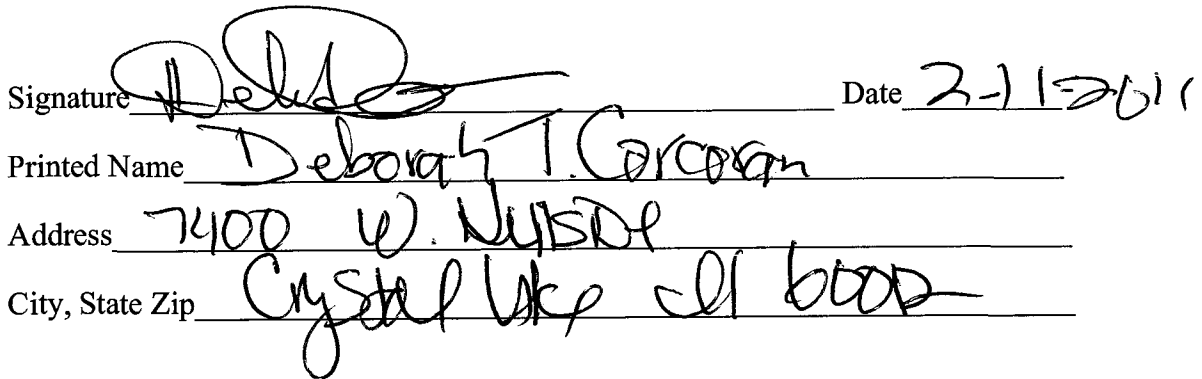 Signature Date 2-11-2011
Printed Name Deborah T. Corcoran
Address 7400 W.
City, State Zip Crystal Lake Il 60012